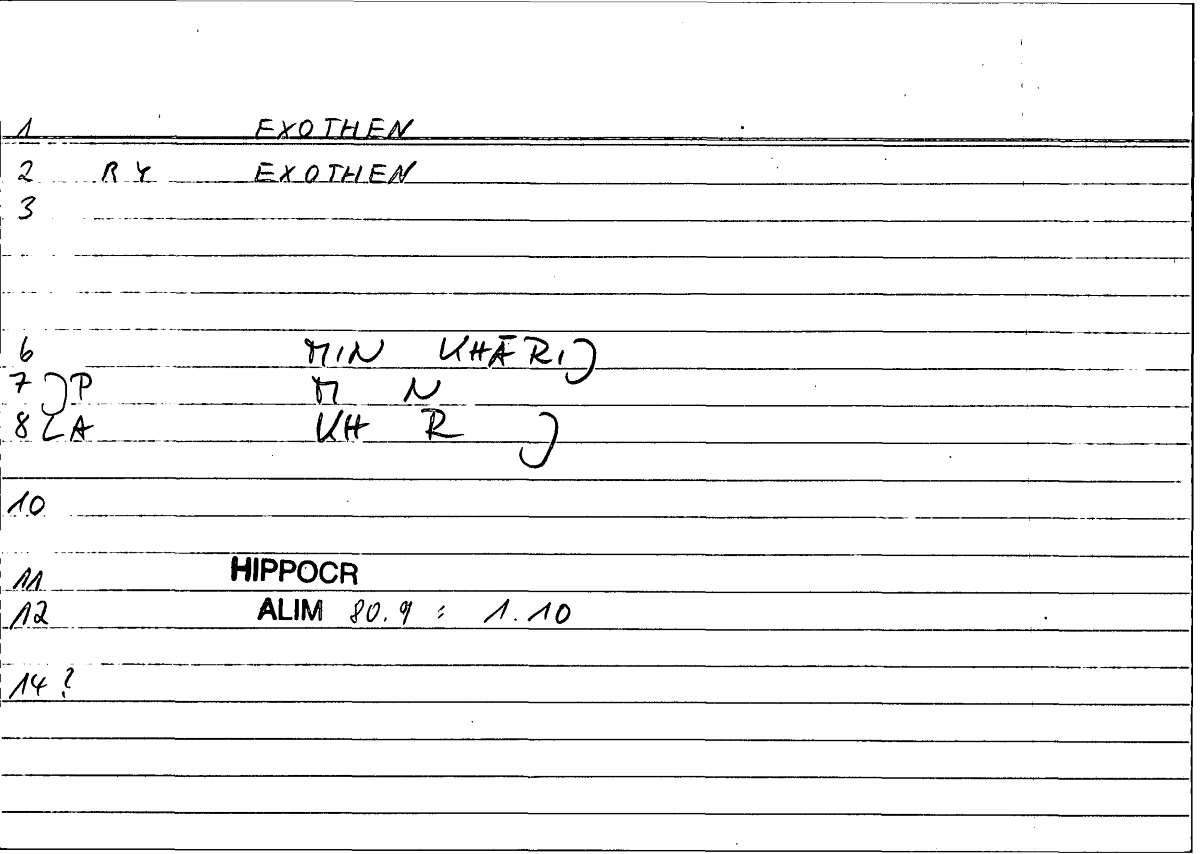 1 EXOTHEN
2 RY EXOTHEN
3
6 MIN KHĀRIJ
7 JP M N
8 LA KH R J
10
11 HIPPOCR
12 ALIM 80.9 : 1.10
14 ?